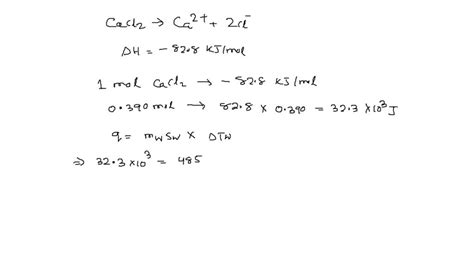 CaCl2 → Ca2+ + 2Cl-
ΔH = -82.8 KJ/mol
1 mol CaCl2 → -82.8 KJ/mol
0.390 mol → 82.8 × 0.390 = 32.3 × 10^3 J
q = mw Sw × ΔTw
⇒ 32.3 × 10^3 = 485